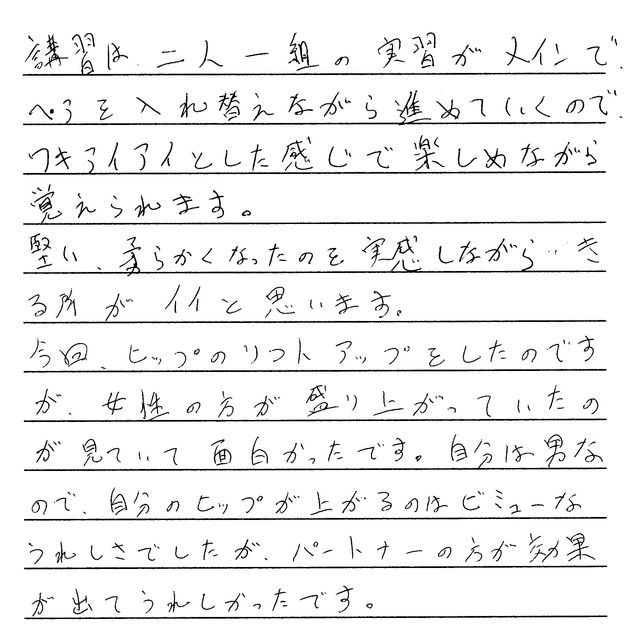 講習は、二人一組の実習がメインで、
ペアを入れ替えながら進めていくので、
ワキアイアイとした感じで楽しめながら
覚えられます。
堅い、柔らかくなったのを実感しながら…き
る所がイイと思います。
今回、ヒップのリフトアップをしたのです
が、女性の方が盛り上がっていたの
が見ていて面白かったです。自分は男な
ので、自分のヒップが上がるのはビミューな
うれしさでしたが、パートナーの方が効果
が出てうれしかったです。